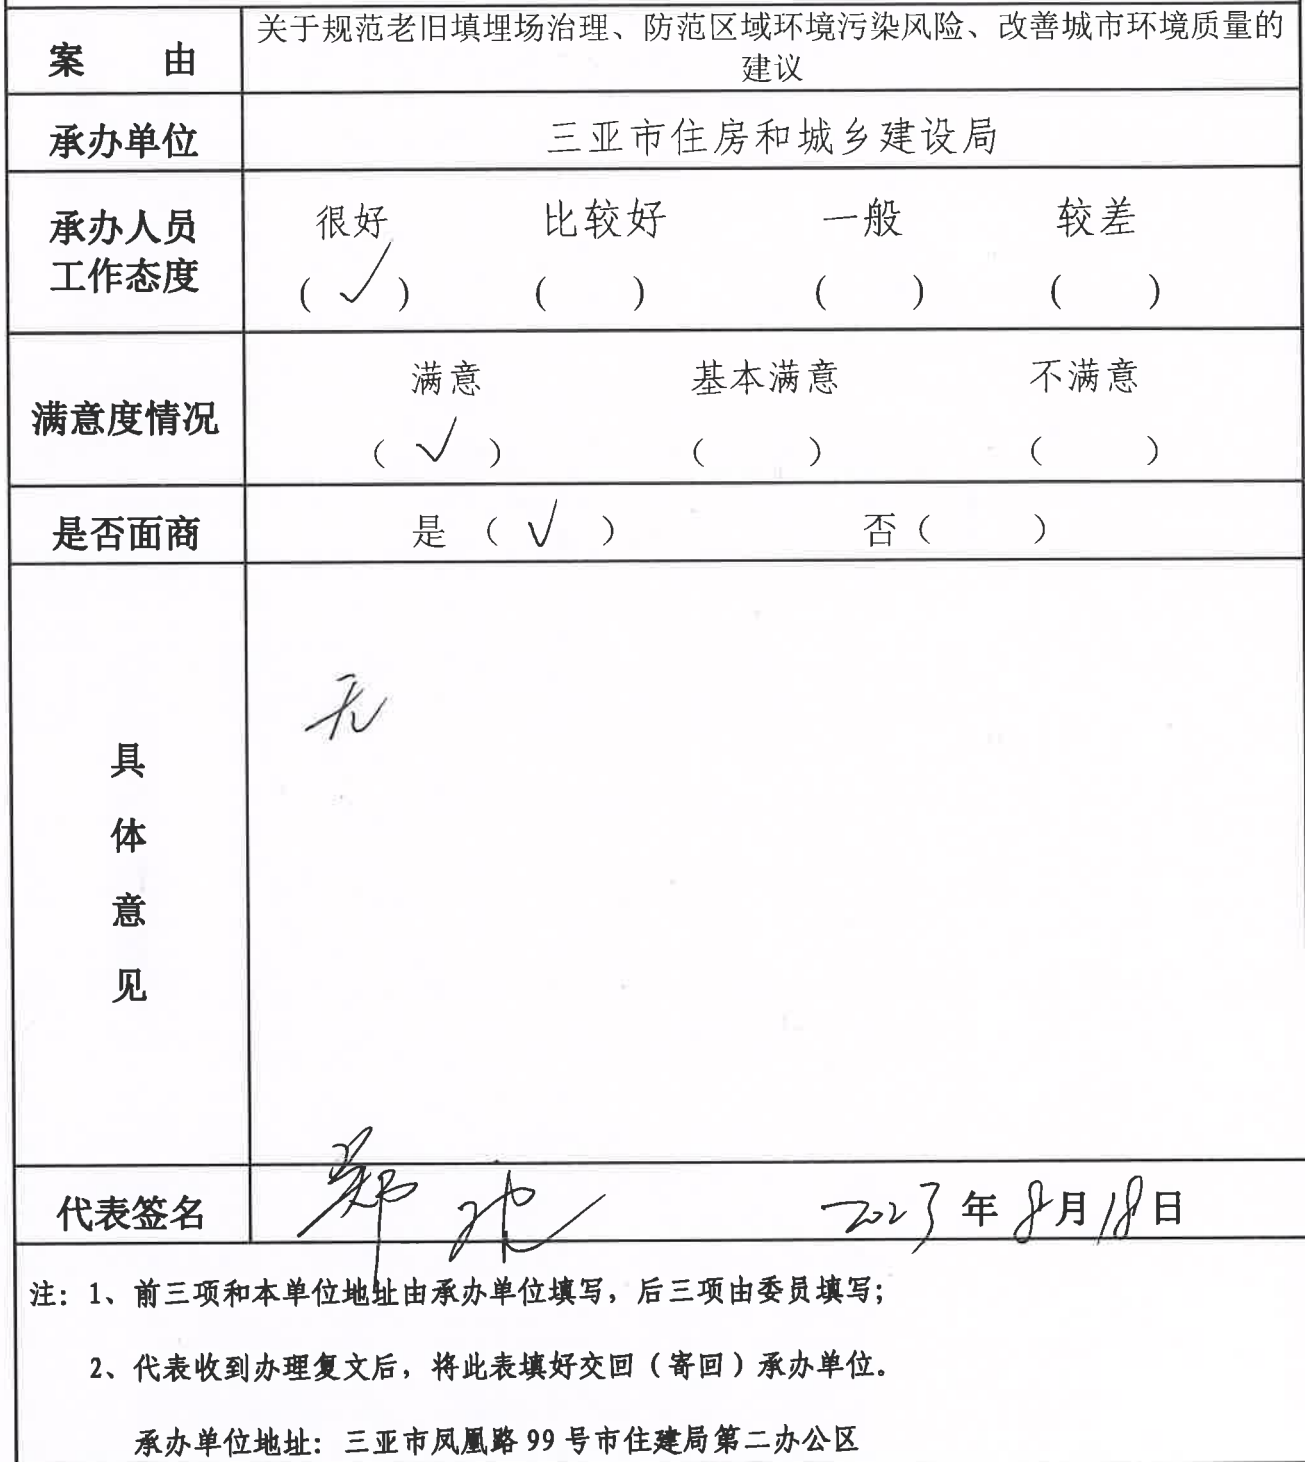 案 由 关于规范老旧填埋场治理、防范区域环境污染风险、改善城市环境质量的
建议
承办单位 三亚市住房和城乡建设局
承办人员
工作态度
很好 比较好 一般 较差
(√) ( ) ( ) ( )
满意度情况
满意 基本满意 不满意
(√) ( ) ( )
是否面商 是(√) 否( )
具
体
意
见
无
代表签名 2023年8月18日
注：1、前三项和本单位地址由承办单位填写，后三项由委员填写；
2、代表收到办理复文后，将此表填好交回（寄回）承办单位。
承办单位地址：三亚市凤凰路99号市住建局第二办公区